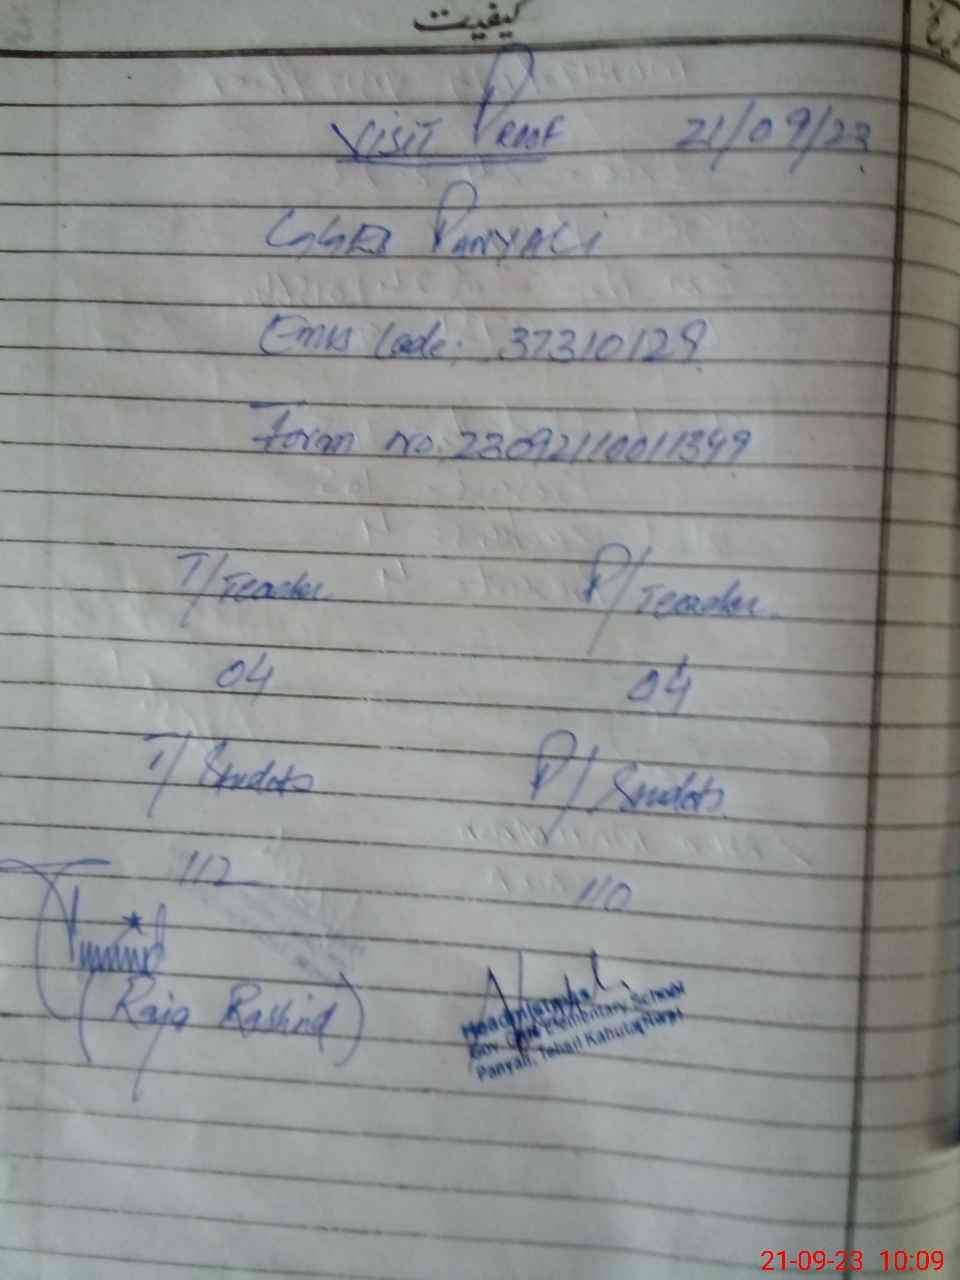 کیفیت
Visit Proof 21/09/23
GGES Panyali
Emis Code: 37310129
Form no. 23092110011349
T/Teacher P/Teacher
04 04
T/Studets P/Studets
112 110
(Raja Rashid)
Headmistress
Gov. Girls Elementary School
Panyali, Tehsil Kahuta
21-09-23 10:09